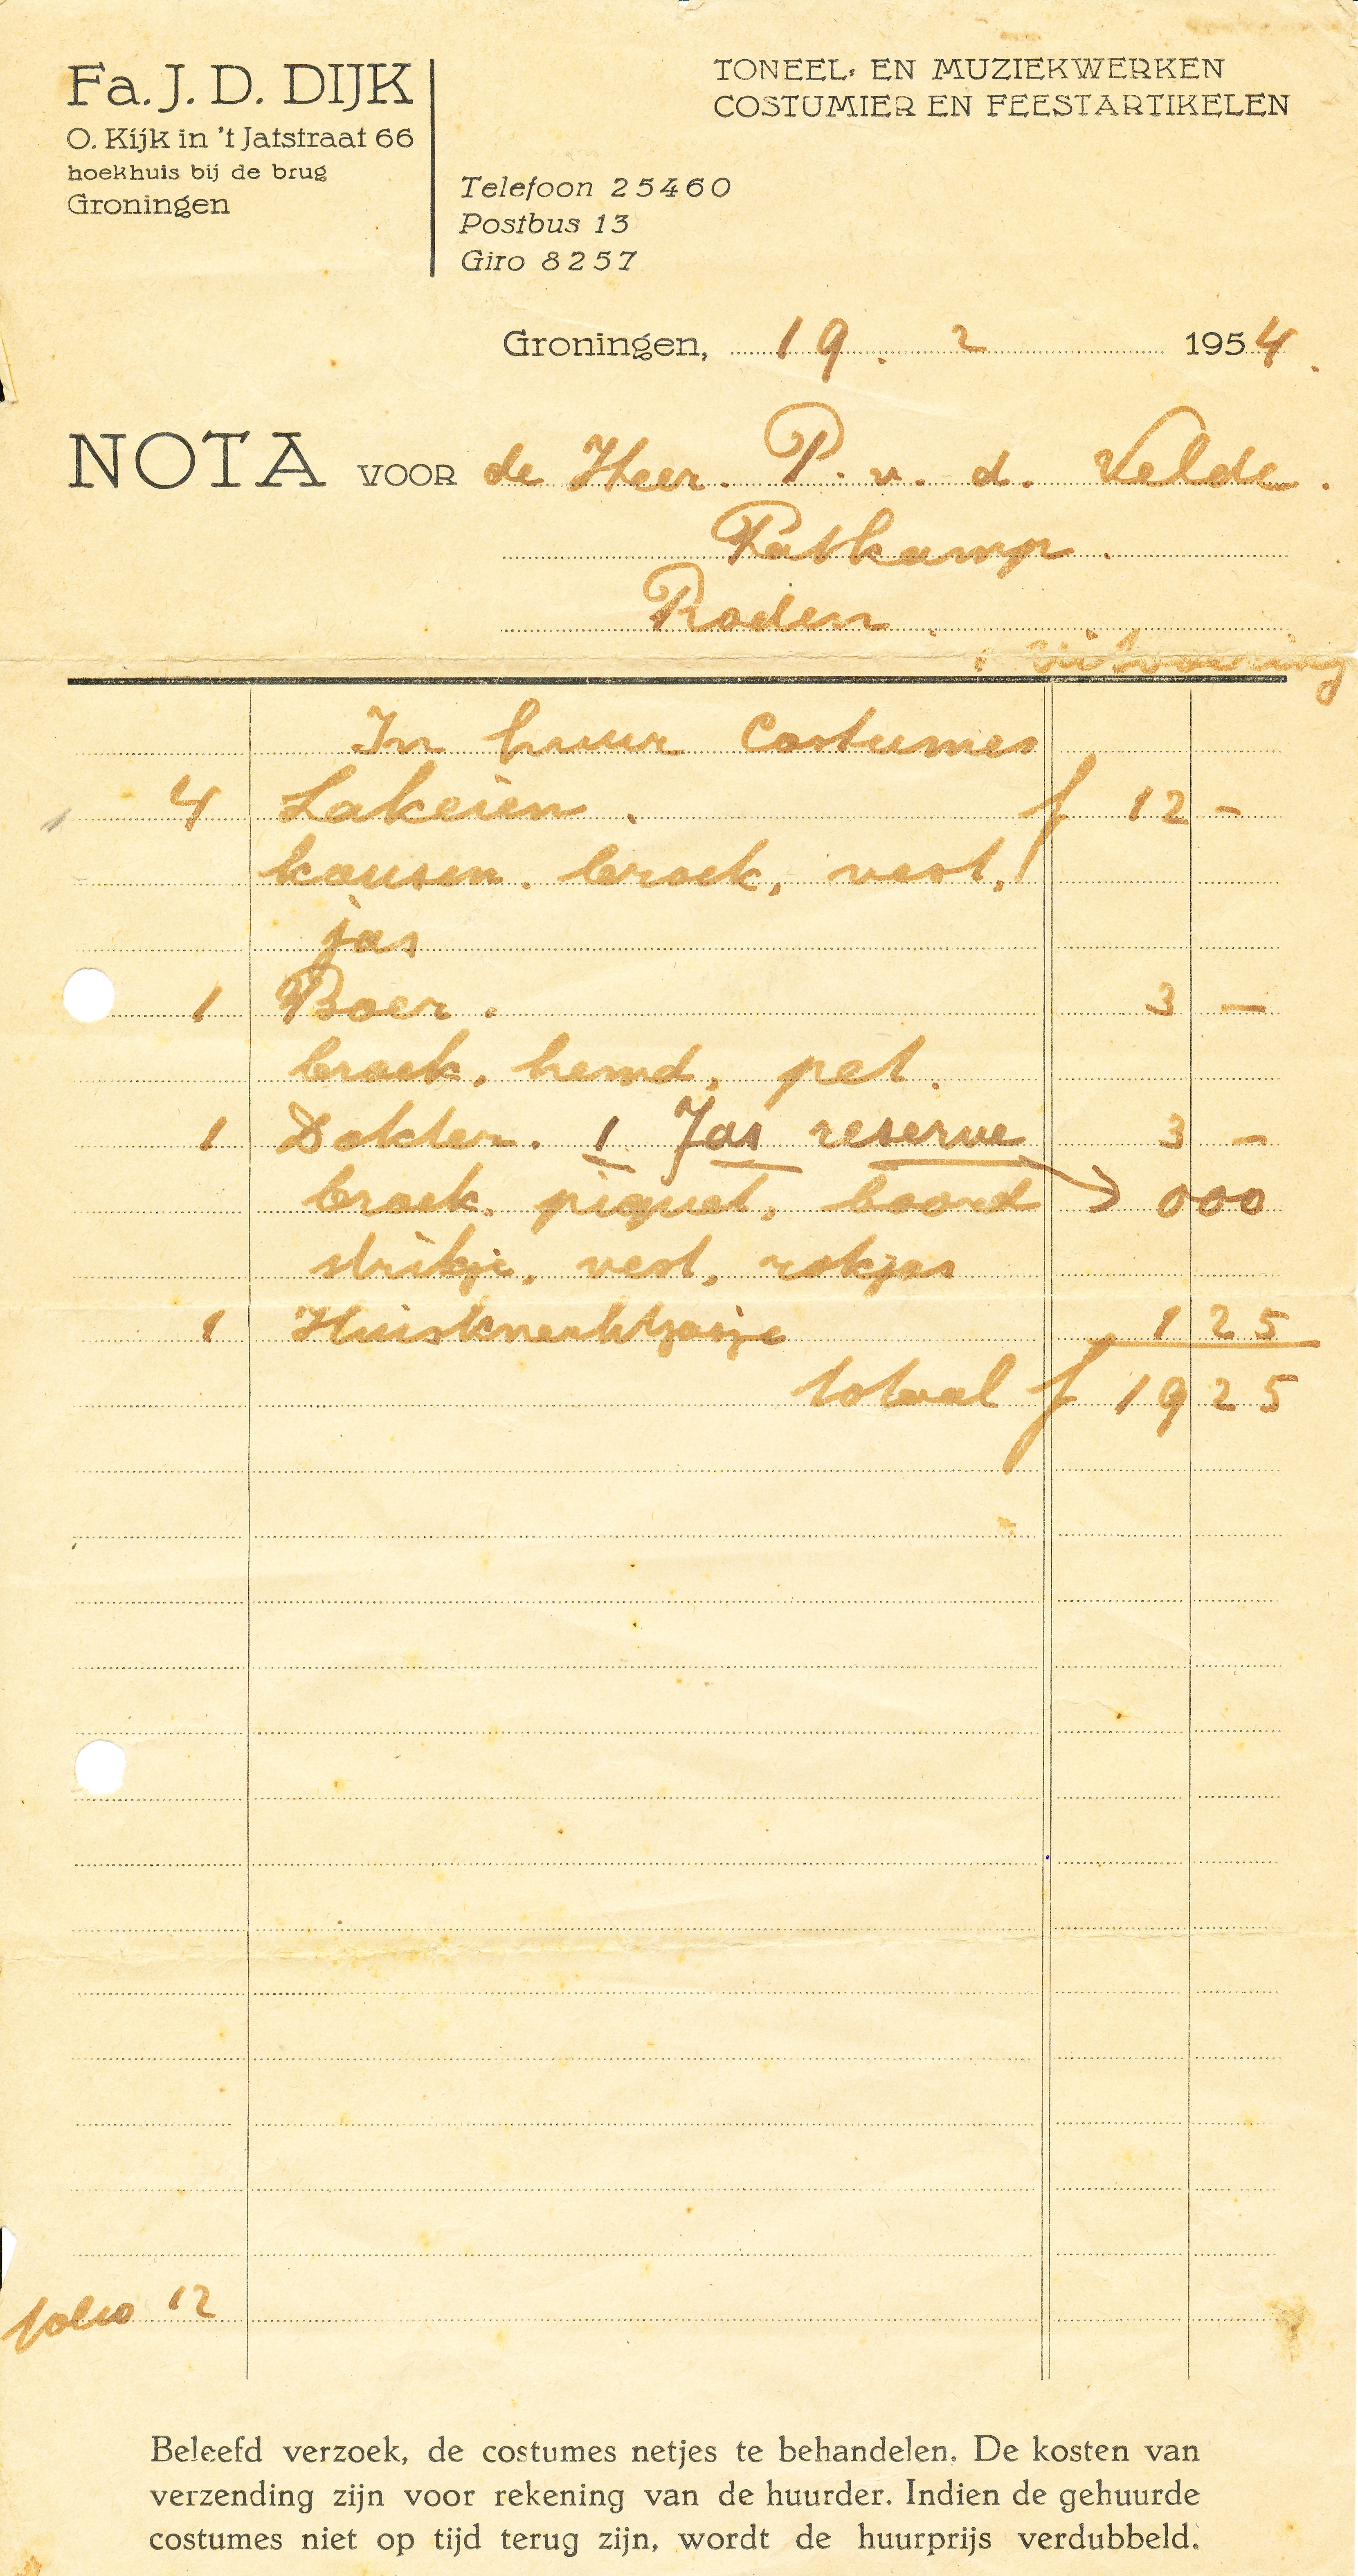 Fa. J. D. DIJK
O. Kijk in 't Jatstraat 66
hoekhuis bij de brug
Groningen
TONEEL- EN MUZIEKWERKEN
COSTUMIER EN FEESTARTIKELEN
Telefoon 25460
Postbus 13
Giro 8257
Groningen, 19. 2 1954.
NOTA VOOR de Heer. P. v. d. Velde.
Roden.
1 uitvoering
In huur Costumes
4 Lakeien. f 12 -
kousen. broek, vest,
jas
1 Boer. 3 -
broek, hemd, pet.
1 Dokter. 1 Jas reserve 3 -
broek, piquet, boord 000
strikje, vest, rokjas
1 Huisknechtjasje 1 25
totaal f 19 25
folio 12
Beleefd verzoek, de costumes netjes te behandelen. De kosten van
verzending zijn voor rekening van de huurder. Indien de gehuurde
costumes niet op tijd terug zijn, wordt de huurprijs verdubbeld.